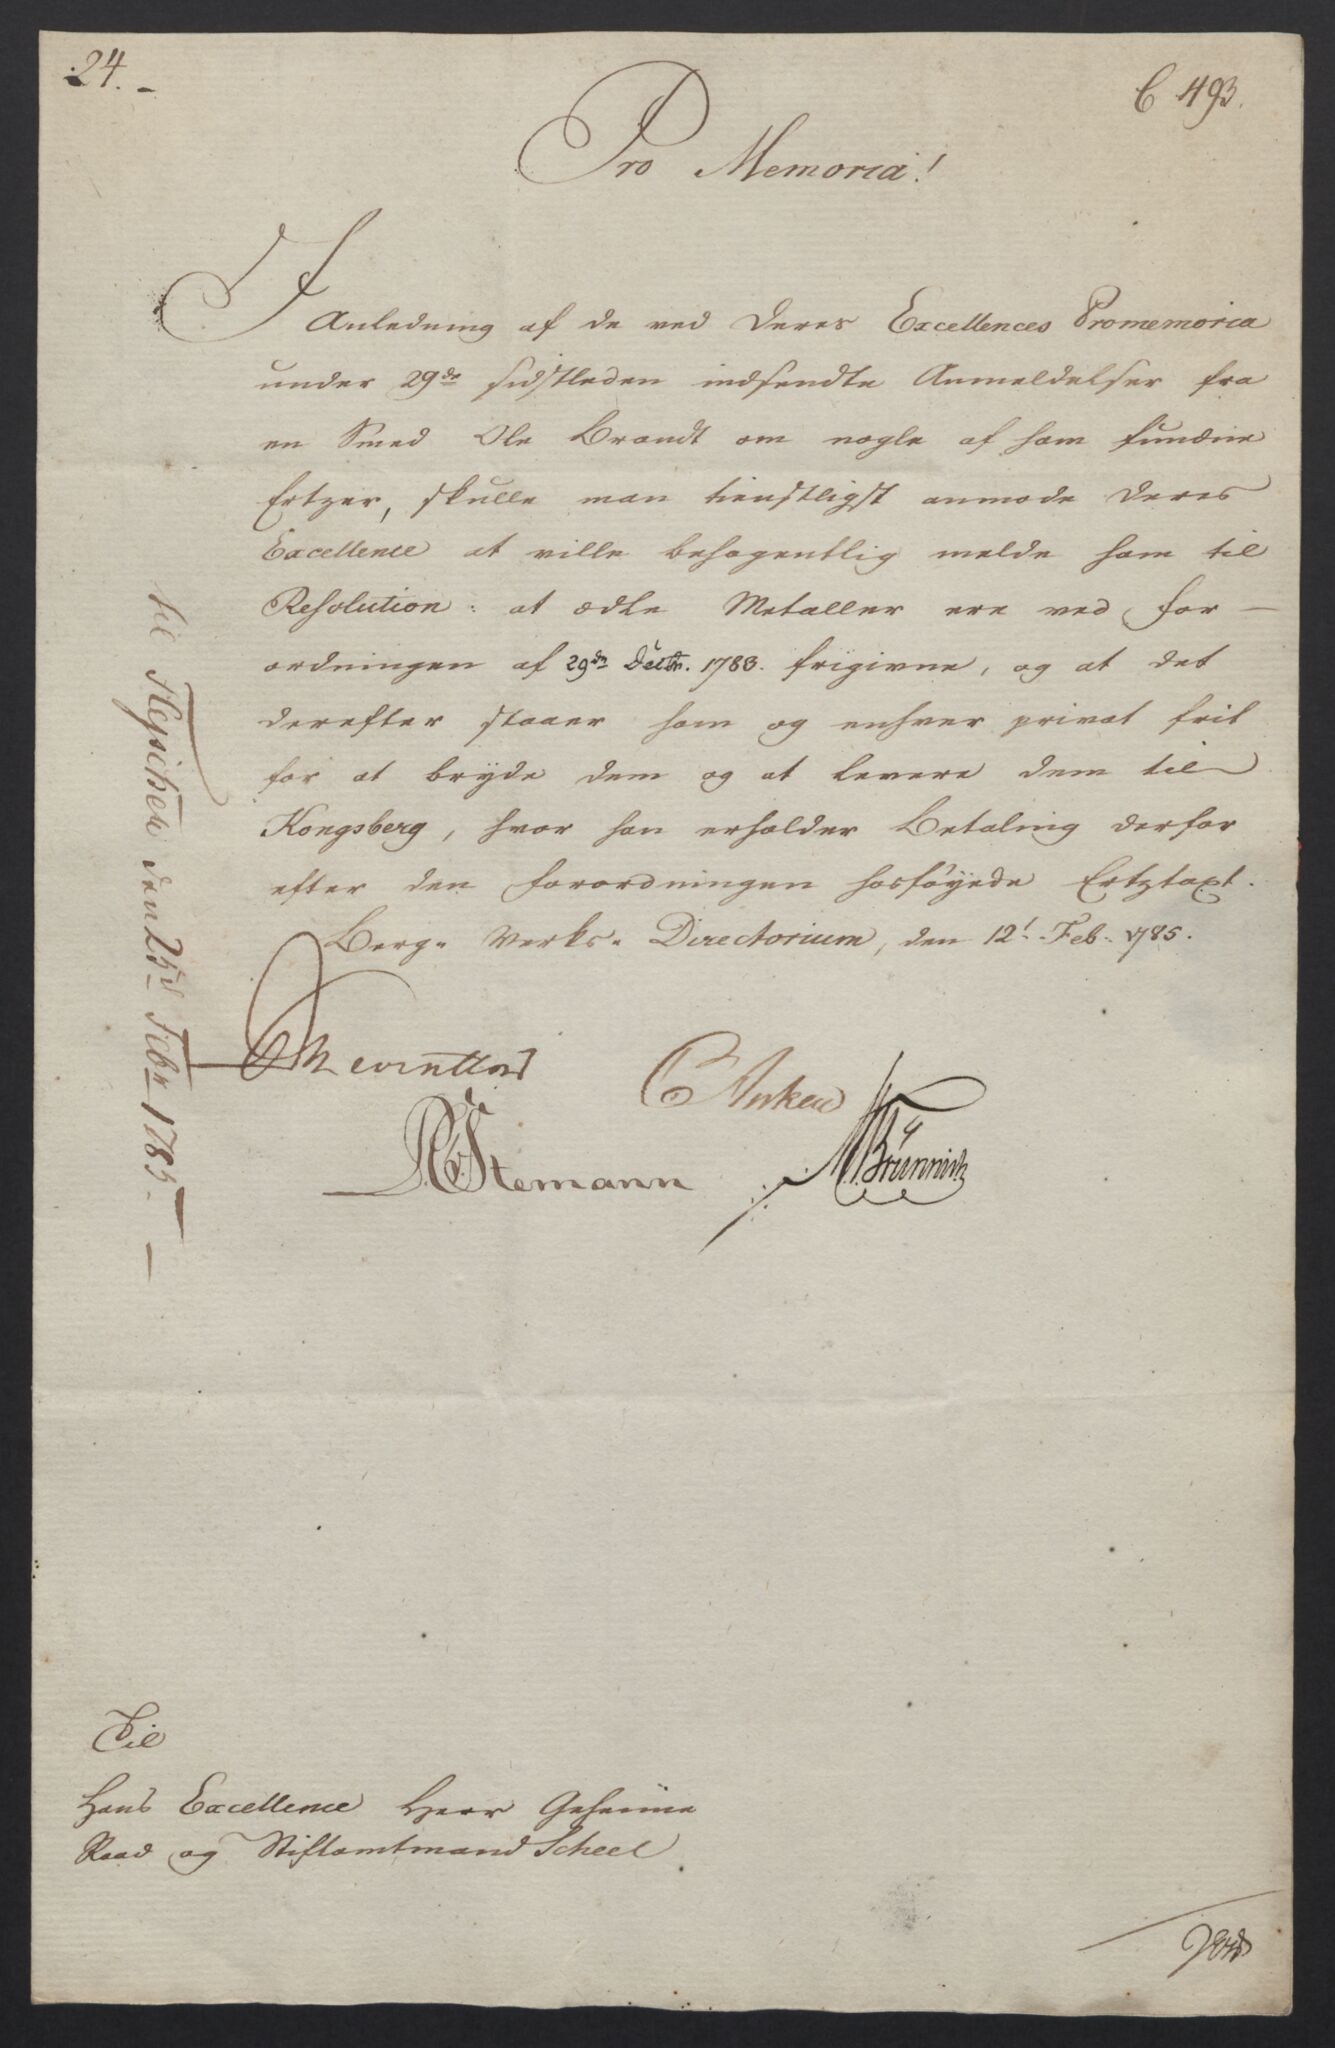 24.
C 493.
Pro Memoria!
I Anledning af de ved Deres Excellences Promemoria
under 29de sidstleden indsendte Anmeldelser fra
en Smed Ole Brandt om nogle af ham fundne
Ertzer, skulle man tienstligst anmode Deres
Excellence at ville behagentlig melde ham til
Resolution: at ædle Metaller ere ved For-
ordningen af 29de Decbr. 1783. frigivne, og at det
derefter staaer ham og enhver privat frit
for at bryde dem og at levere dem til
Kongsberg, hvor han erholder Betaling derfor
efter den Forordningen hosføyede Ertztaxt.
Berg- Verks- Directorium, den 12t. Feb. 1785.
Hevinttoÿ
C Anker
Stemann
M. Brünnich
til Fleischer den 25d Febr 1785.
Til
Hans Excellence Herr Geheime
Raad og Stiftamtmand Scheel